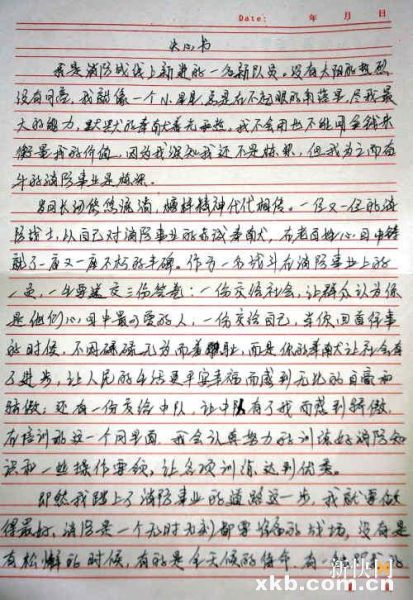 Date: 年 月 日
决心书
我是消防战线上新进的一名新队员。没有太阳的热烈
没有月亮，我就像一个小星星，总是在不起眼的角落里，尽我最
大的能力，默默的奉献着光和热。我不会用也不能用金钱来
衡量我的价值，因为我深知我还不是栋梁，但我为之而奋
斗的消防事业是栋梁。
岁月长河悠悠流淌，精神代代相传。一任又一任的消
防战士，从自己对消防事业的赤诚奉献，在老百姓心目中铸
就了一座又一座不朽的丰碑。作为一名战斗在消防事业上的
一员，一生要递交三份答卷：一份交给社会，让群众认为你
是他们心目中最可爱的人，一份交给自己，当你回首往事
的时候，不因碌碌无为而羞耻，而是你的奉献让社会有
了进步，让人民的生活更平安幸福而感到无比的自豪和
骄傲；还有一份交给中队，让中队有了我而感到骄傲，
在培训的这一个月里面，我会认真努力的训练好消防知
识和一些操作要领，让各项训练达到优秀。
既然我踏上了消防事业的道路这一步，我就要做
得最好，消防是一个无时无刻都要准备的战场，没有是
有松懈的时候，有的是全天候的使命，有一
新快网
xkb.com.cn